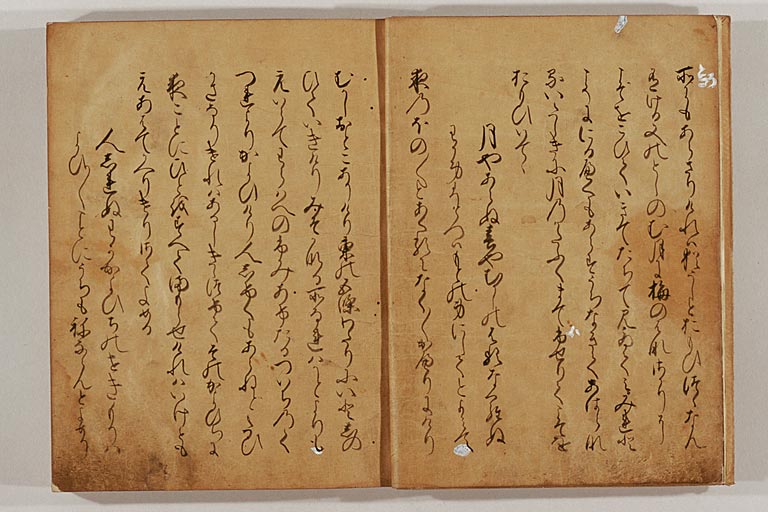 所にもあらさりけれは猶うしとおもひつゝなん
ありける又のとしのむ月に梅の花さかりに
こそをこひていきてたちて見ゐて見みれと
こそににるへくもあらすうちなきてあはらな
るいたしきに月のかたふくまてふせりてこそを
おもひいてゝ
月やあらぬ春やむかしのはるならぬ
わか身ひとつはもとの身にしてとよみて
夜のほの〳〵とあくるになく〳〵かへりにけり
むかしおとこありけり東の五條わたりにいとしの
ひていきけりみそかなる所なれはかとよりも
えいらてわらはへのふみあけたるついちのく
つれよりかよひけり人しけくもあらねとたひ
かさなりけれはあるしきゝつけてそのかよひちに
夜ことにひとをすへてまもらせけれはいけとも
えあはてかへりけりさてよめる
人しれぬわかかよひちのせきもりは
よひ〳〵ことにうちもねなゝんとよめり